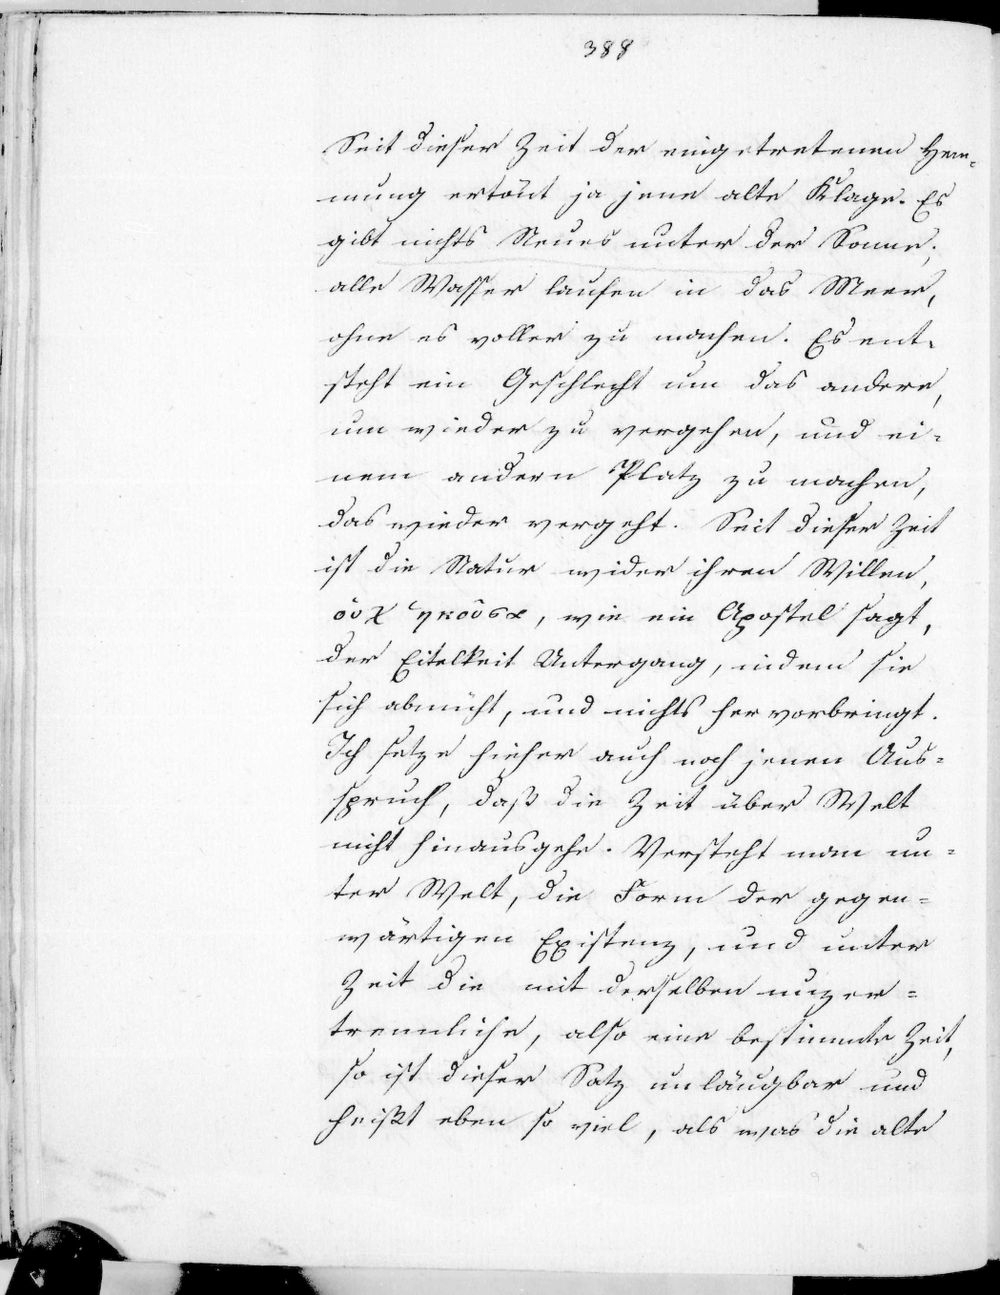 388
Seit dieser Zeit der eingetretenen Hem-
mung ertönt ja jene alte Klage. Es
gibt nichts Neues unter der Sonne;
alle Wasser laufen in das Meer,
ohne es voller zu machen. Es ent-
steht ein Geschlecht um das andere,
um wieder zu vergehen, und ei-
nem andern Platz zu machen,
das wieder vergeht. Seit dieser Zeit
ist die Natur wider ihren Willen,
ὀυχ ἑκοῦσα, wie ein Apostel sagt,
der Eitelkeit Untergang, indem sie
sich abmüht, und nichts hervorbringt.
Ich setze hieher auch noch jenen Aus-
spruch, daß die Zeit über Welt
nicht hinausgehe. Versteht man un-
ter Welt, die Form der gegen-
wärtigen Existenz, und unter
Zeit die mit derselben unzer-
trennliche, also eine bestimmte Zeit,
so ist dieser Satz unläugbar und
heißt eben so viel, als was die alte